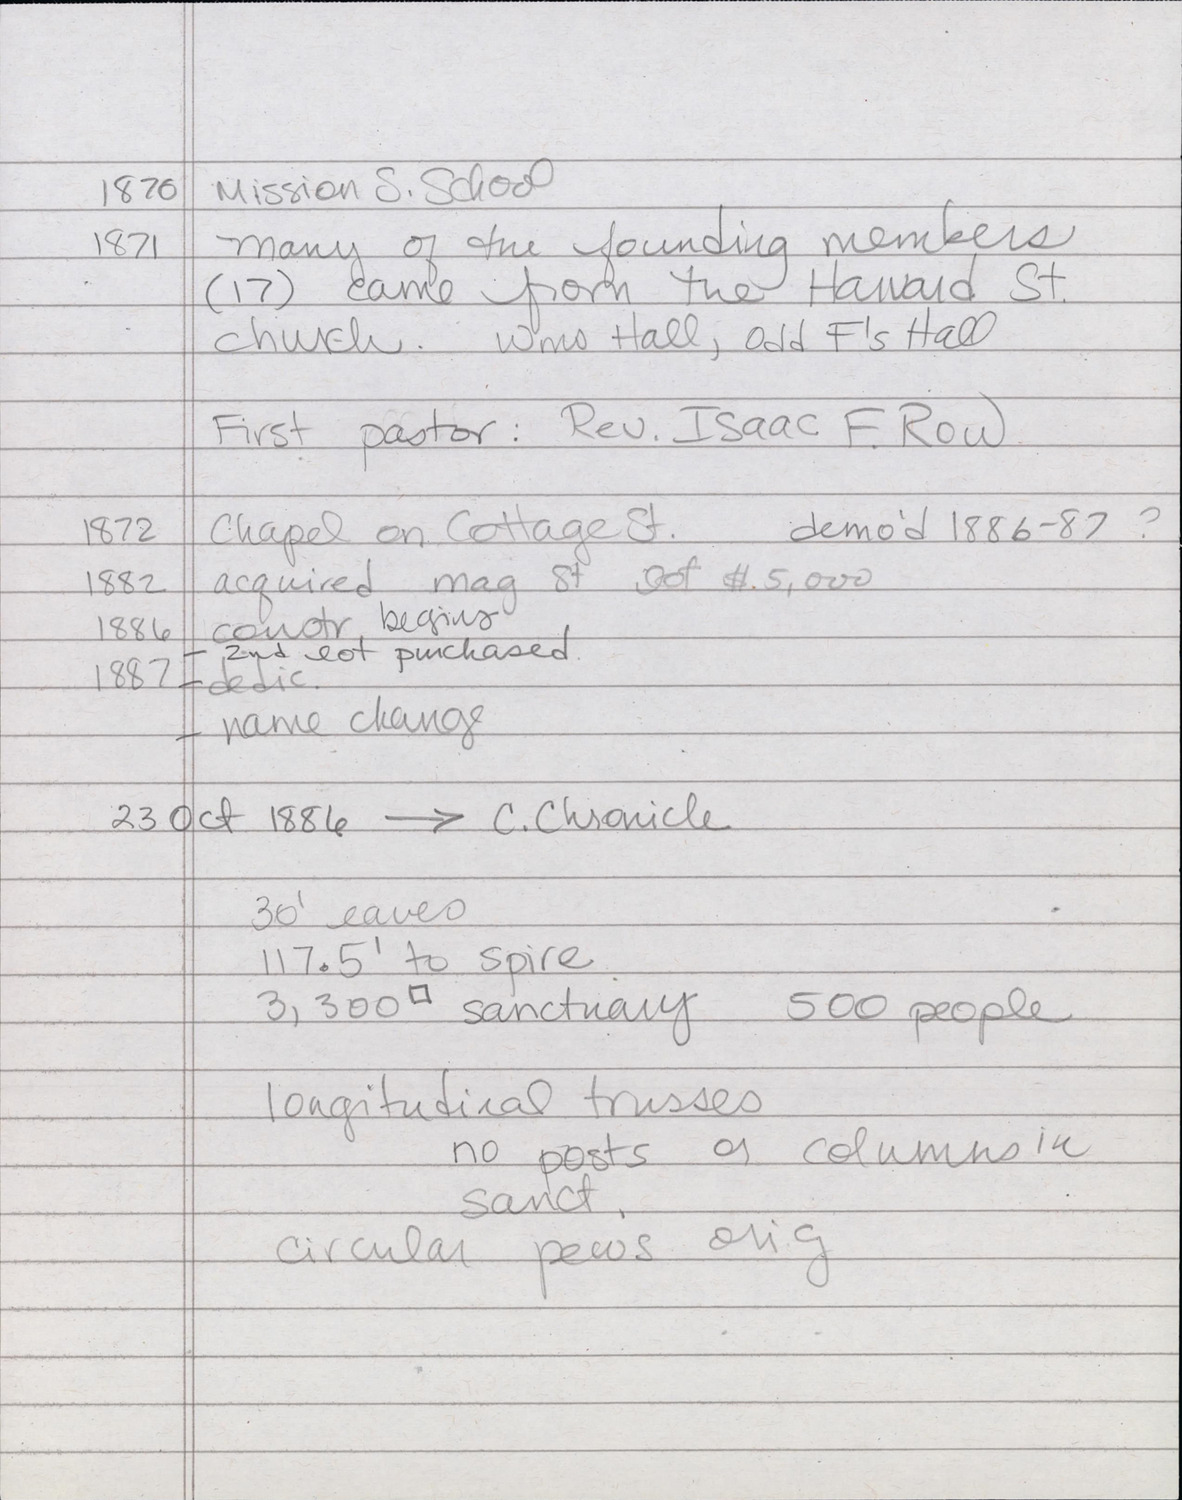 1870 Mission S. School
1871 many of the founding members
(17) came from the Harvard St.
church. Wms Hall, Odd F's Hall
First pastor: Rev. Isaac F. Row
1872 Chapel on Cottage St. demo'd 1886-87 ?
1882 acquired mag St lot $5,000
1886 constr. begins
- 2nd lot purchased.
1887 - dedic.
- name change
23 Oct 1886 → C. Chronicle
30' eaves
117.5' to spire
3,300□ sanctuary 500 people
longitudinal trusses
no posts or columns in
sanct.
circular pews orig